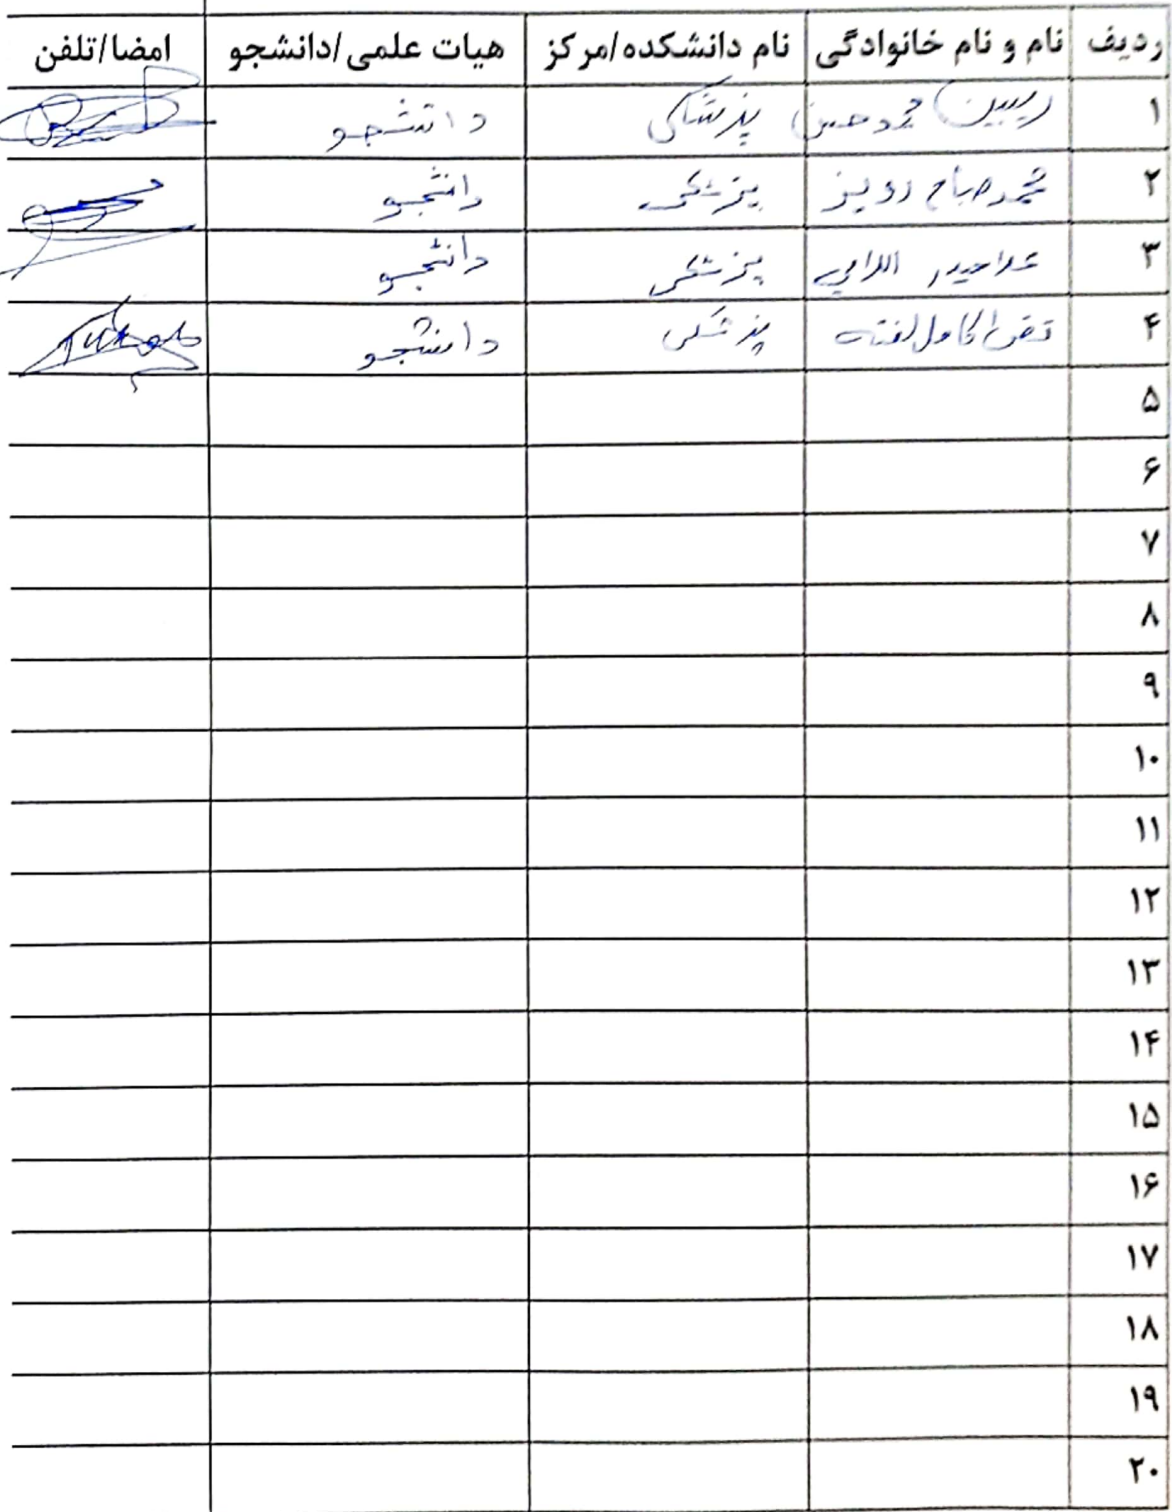 ردیف نام و نام خانوادگی نام دانشکده/مرکز هیات علمی/دانشجو امضا/تلفن
۱ ریبین محمد حسن پزشکی دانشجو
۲ محمد صباح پزشکی دانشجو
۳ پزشکی دانشجو
۴ کامل لفته پزشکی دانشجو
۵
۶
۷
۸
۹
۱۰
۱۱
۱۲
۱۳
۱۴
۱۵
۱۶
۱۷
۱۸
۱۹
۲۰